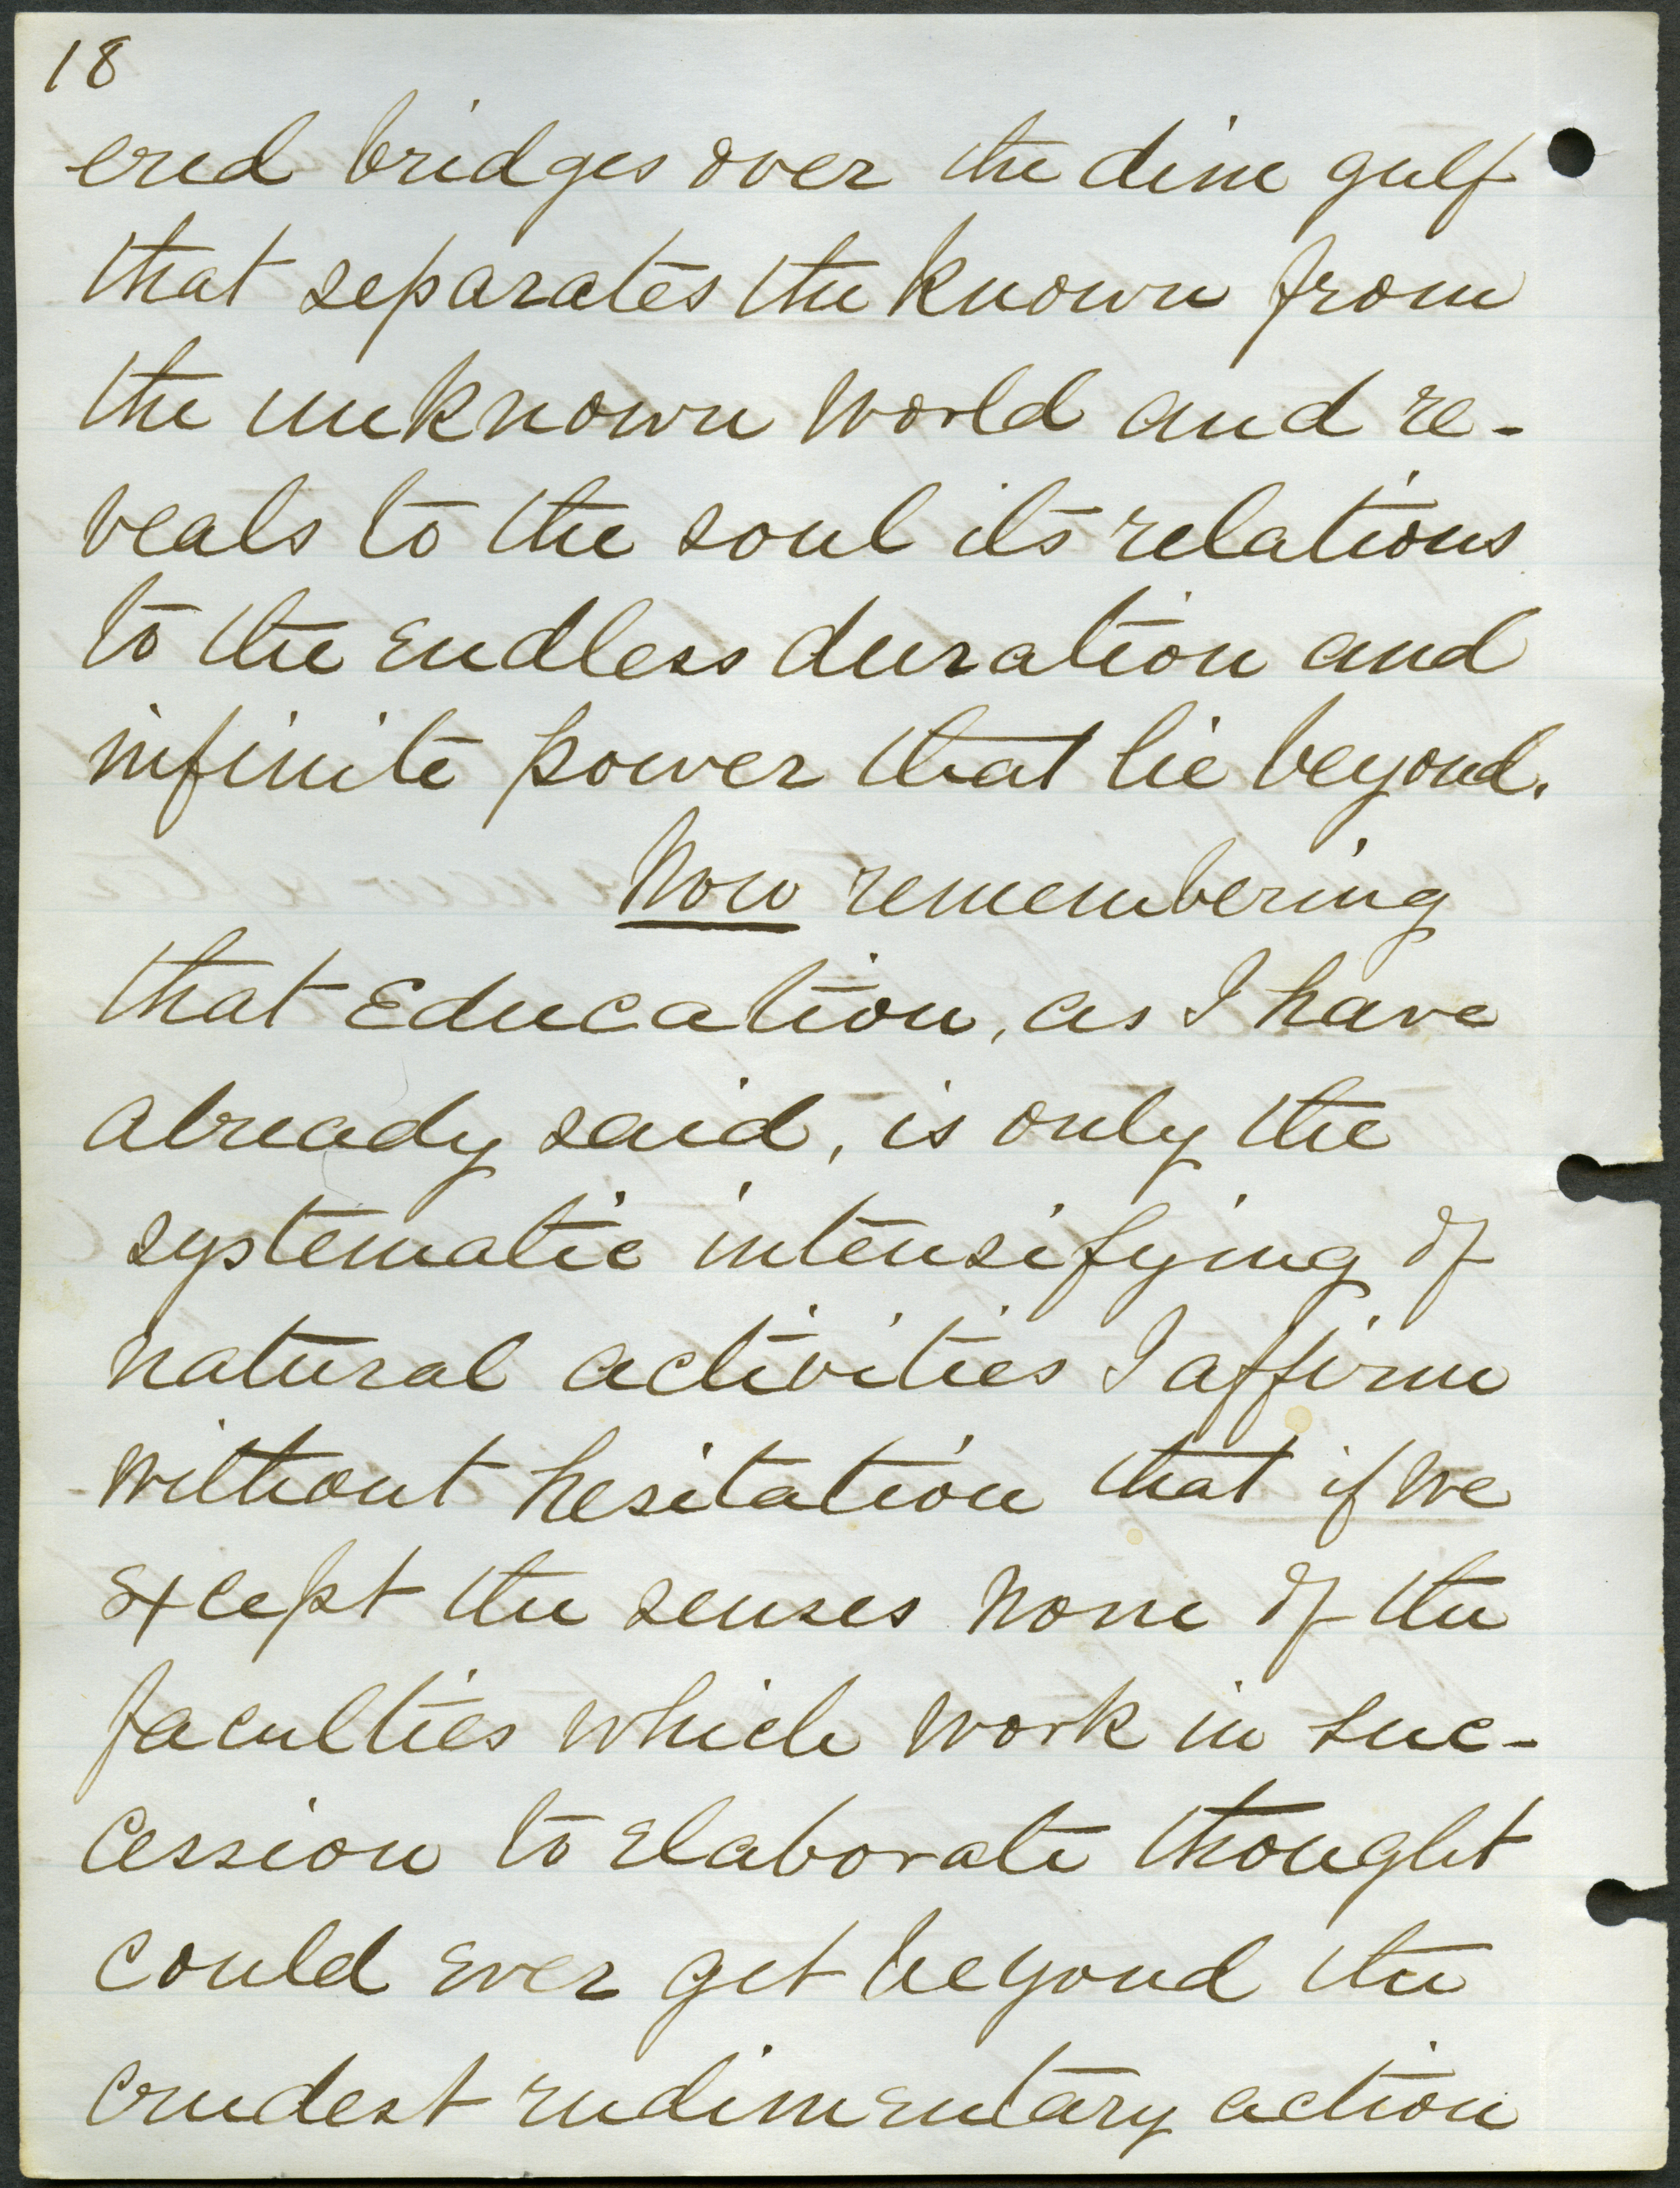 18
ered bridges over the dim gulf
that separates the known from
the unknown world and re-
veals to the soul its relations
to the endless duration and
infinite power that lie beyond.
Now remembering
that Education, as I have
already said, is only the
systematic intensifying of
natural activities I affirm
without hesitation that if we
except the senses none of the
faculties which work in suc-
cession to elaborate thought
could ever get beyond the
crudest rudimentary action